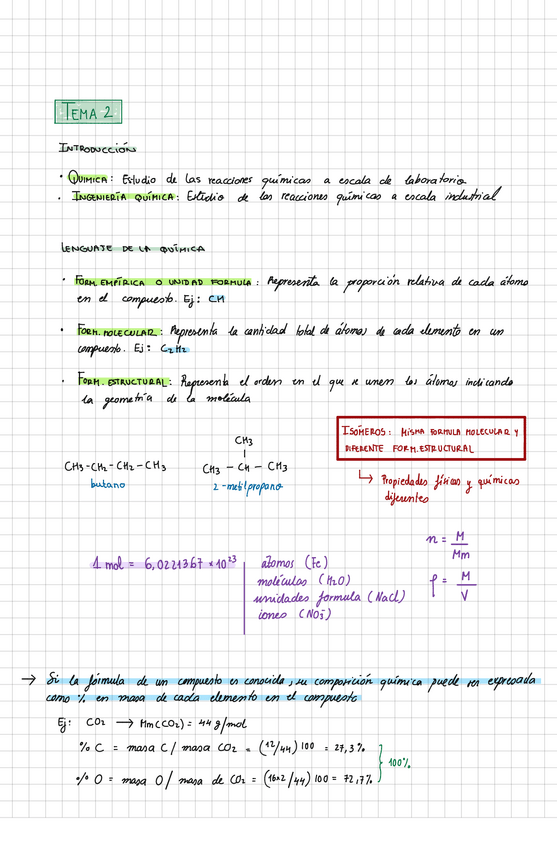 TEMA 2
INTRODUCCIÓN
· QUIMICA: Estudio de las reacciones químicas a escala de laboratorio
· INGENIERÍA QUÍMICA: Estudio de las reacciones químicas a escala industrial
LENGUAJE DE LA QUÍMICA
· FORM. EMPÍRICA O UNIDAD FORMULA: Representa la proporción relativa de cada átomo
en el compuesto. Ej: CH
· FORM. MOLECULAR: Representa la cantidad total de átomos de cada elemento en un
compuesto. Ej: C₂H₂
· FORM. ESTRUCTURAL: Representa el orden en el que se unen los átomos indicando
la geometría de la molécula
ISÓMEROS: MISMA FORMULA MOLECULAR Y
DIFERENTE FORM. ESTRUCTURAL
↳ Propiedades físicas y químicas
diferentes
CH₃
CH₃-CH₂-CH₂-CH₃
CH₃ - CH - CH₃
butano
2-metilpropano
n = M / Mm
ρ = M / V
1 mol = 6,0221367 × 10²³
átomos (Fe)
moléculas (H₂O)
unidades formula (NaCl)
iones (NO₃⁻)
→ Si la fórmula de un compuesto es conocida, su composición química puede ser expresada
como % en masa de cada elemento en el compuesto
Ej: CO₂ → Mm(CO₂) = 44 g/mol
% C = masa C / masa CO₂ = (12/44) 100 = 27,3 %
% O = masa O / masa de CO₂ = (16×2/44) 100 = 72,7%
100%